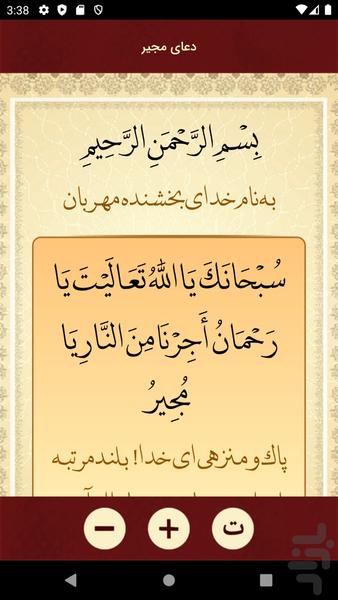 3:38
دعای مجیر
بِسْمِ الرَّحْمَنِ الرَّحِيمِ
به نام خدای بخشنده مهربان
سُبْحَانَكَ يَا اللَّهُ تَعَالَيْتَ يَا
رَحْمَانُ أَجِرْنَا مِنَ النَّارِ يَا
مُجِيرُ
پاک و منزهی ای خدا! بلند مرتبه
ت
بازار